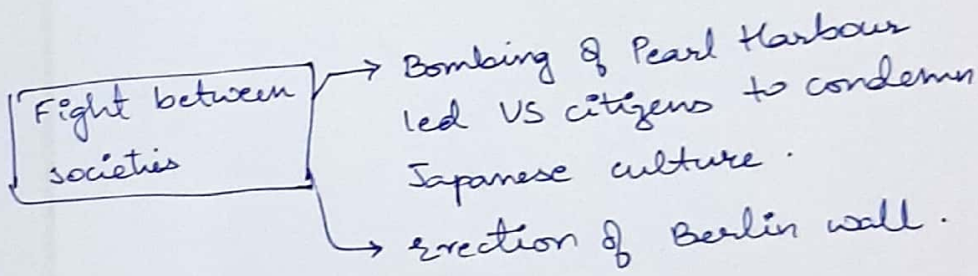 Fight between
societies
Bombing of Pearl Harbour
led US citizens to condemn
Japanese culture.
Erection of Berlin wall.